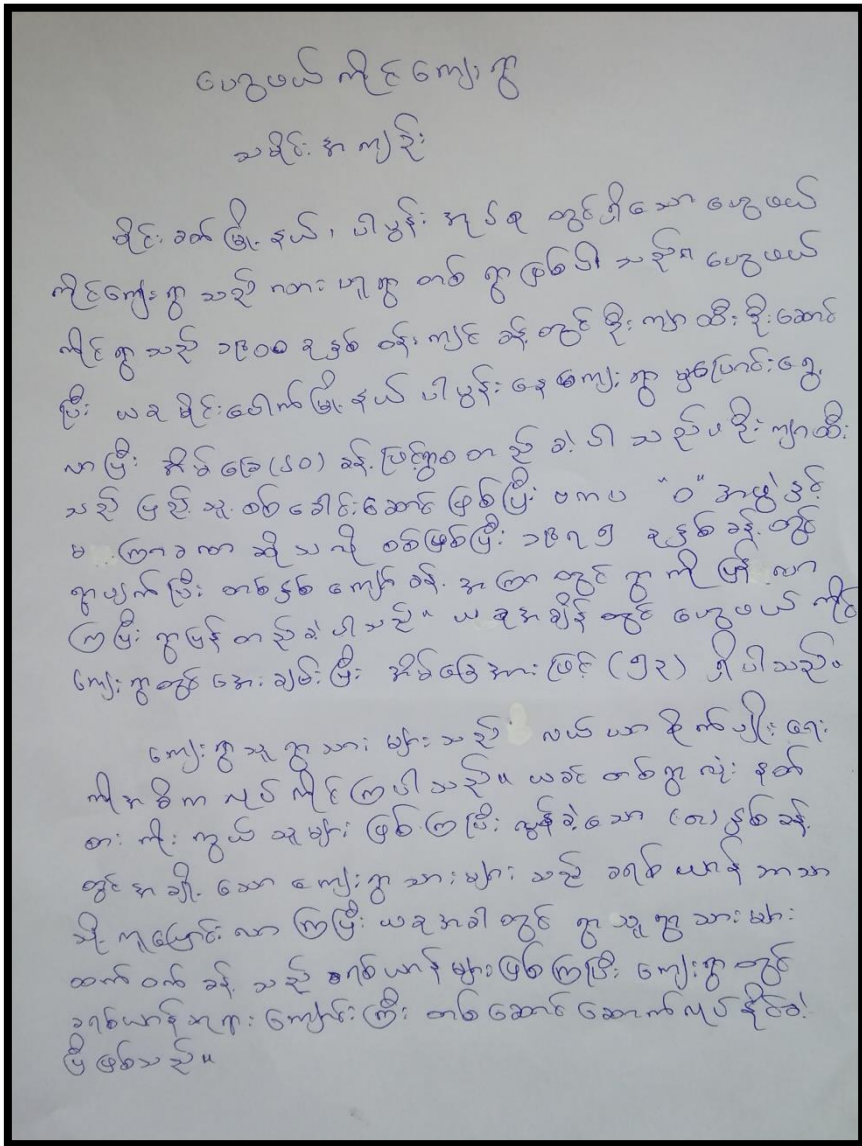 ပေဌဖယ်ကိုင်ကျေးရွာ
သမိုင်းအကျဉ်း
မိုင်းခတ်မြို့နယ်၊ ပါမွန်းအုပ်စု တွင်ရှိသော ပေဌဖယ်
ကိုင်ကျေးရွာသည် လားဟူရွာ တစ်ရွာဖြစ်ပါသည်။ ပေဌဖယ်
ကိုင်ရွာသည် ၁၉၀၀ ခုနှစ် ဝန်းကျင်ခန့်တွင် ဦးကျာထီး ဦးဆောင်
ပြီး ယခု မိုင်းပေါက်မြို့နယ် ပါမွန်းနေကျေးရွာ မှပြောင်းရွှေ့
လာပြီး အိမ်ခြေ (၄၀) ခန့်ဖြင့်ရွာစတည်ခဲ့ပါသည်။ ဦးကျာထီး
သည် ပြည်သူ့စစ်ခေါင်းဆောင်ဖြစ်ပြီး ဗကပ "ဝ" အဖွဲ့နှင့်
မကြာခဏ ဆိုသလို စစ်ဖြစ်ပြီး ၁၉၇၅ ခုနှစ်ခန့်တွင်
ရွာပျက်ပြီး တစ်နှစ်ကျော်ခန့်အကြာတွင် ရွာကိုပြန်လာ
ကြပြီး ရွာပြန်တည်ခဲ့ပါသည်။ ယခုအချိန်တွင် ပေဌဖယ်ကိုင်
ကျေးရွာတွင် အေးချမ်းပြီး အိမ်ခြေအားဖြင့် (၅၃) ရှိပါသည်။
ကျေးရွာသူရွာသားများသည် လယ်ယာစိုက်ပျိုးရေး
ကိုအဓိကလုပ်ကိုင်ကြပါသည်။ ယခင် တစ်ရွာလုံး နတ်
စားကိုးကွယ်သူများ ဖြစ်ကြပြီး လွန်ခဲ့သော (၈) နှစ်ခန့်
တွင် အချို့သော ကျေးရွာသားများသည် ခရစ်ယာန်ဘာသာ
သို့ကူးပြောင်းလာကြပြီး ယခုအခါတွင် ရွာသူရွာသားများ
ထက်ဝက်ခန့်သည် ခရစ်ယာန်များဖြစ်ကြပြီး ကျေးရွာတွင်
ခရစ်ယာန်ဘုရားကျောင်းကြီး တစ်ဆောင်ဆောက်လုပ်နိုင်ခဲ့
ပြီဖြစ်သည်။